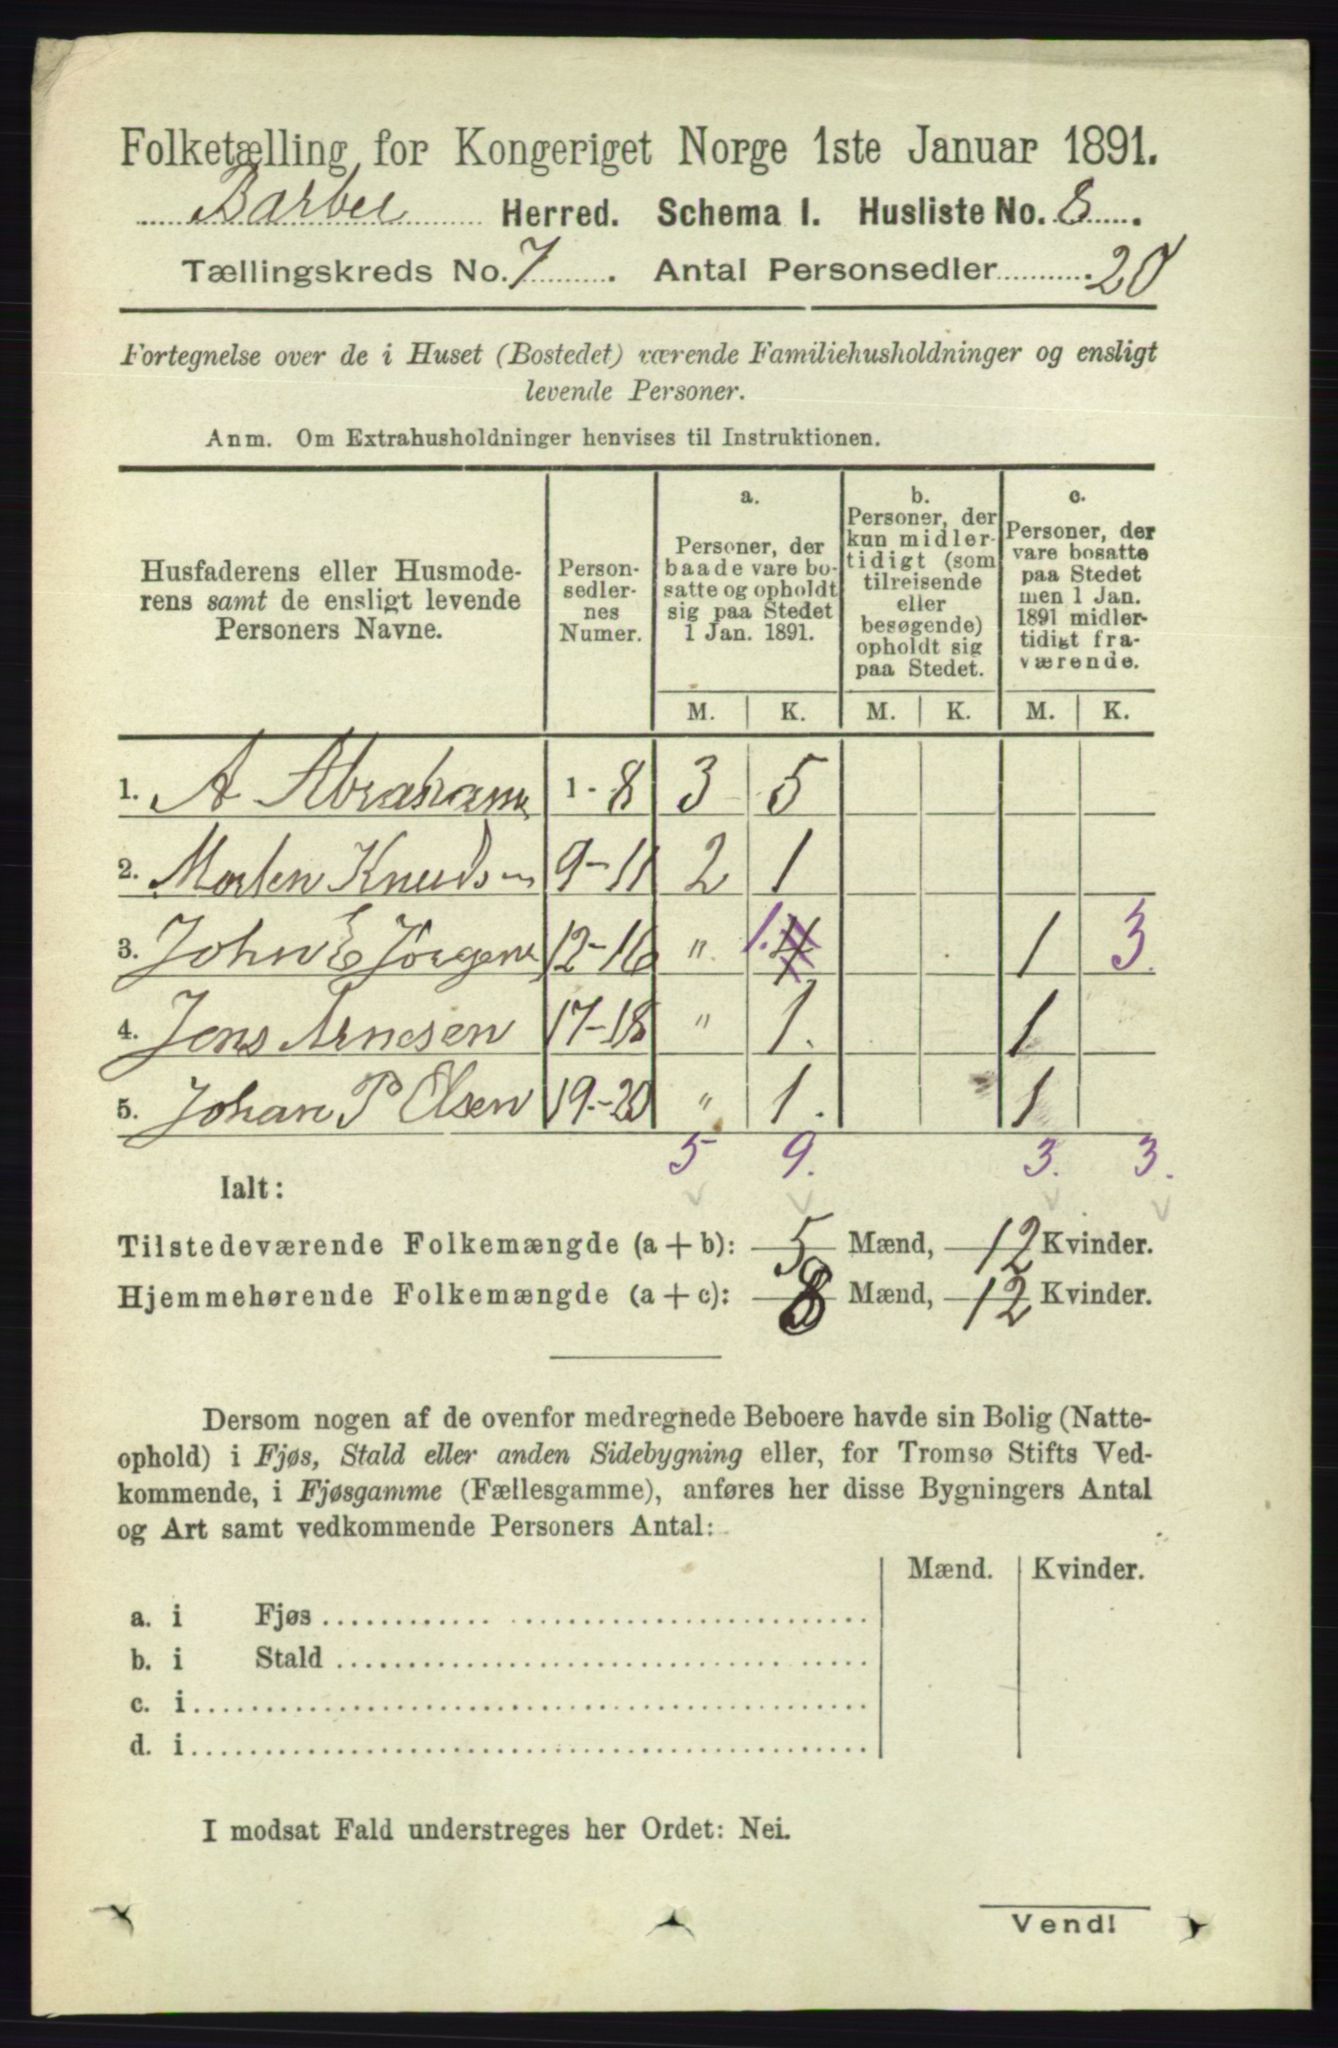 Folketælling for Kongeriget Norge 1ste Januar 1891.
Barbu Herred. Schema I. Husliste No. 8.
Tællingskreds No. 7. Antal Personsedler 20
Fortegnelse over de i Huset (Bostedet) værende Familiehusholdninger og ensligt
levende Personer.
Anm. Om Extrahusholdninger henvises til Instruktionen.
Husfaderens eller Husmode-
rens samt de ensligt levende
Personers Navne.
Person-
sedler-
nes
Numer.
a.
Personer, der
baade vare bo-
satte og opholdt
sig paa Stedet
1 Jan. 1891.
b.
Personer, der
kun midler-
tidigt (som
tilreisende
eller
besøgende)
opholdt sig
paa Stedet.
c.
Personer, der
vare bosatte
paa Stedet
men 1 Jan.
1891 midler-
tidigt fra-
værende.
M. K. M. K. M. K.
1. A Abrahams 1-8 3 5
2. Morten Knudsen 9-11 2 1
3. John E Jörgens 12-16 " 1. 4 1 3.
4. Jens Arnesen 17-18 " 1. 1.
5. Johan P Elsen 19-20 " 1. 1
5 9. 3. 3.
Ialt:
Tilstedeværende Folkemængde (a + b): 5 Mænd, 12 Kvinder.
Hjemmehørende Folkemængde (a + c): 8 Mænd, 12 Kvinder.
Dersom nogen af de ovenfor medregnede Beboere havde sin Bolig (Natte-
ophold) i Fjøs, Stald eller anden Sidebygning eller, for Tromsø Stifts Ved-
kommende, i Fjøsgamme (Fællesgamme), anføres her disse Bygningers Antal
og Art samt vedkommende Personers Antal:
Mænd. Kvinder.
a. i Fjøs
b. i Stald
c. i
d. i
I modsat Fald understreges her Ordet: Nei.
Vend!